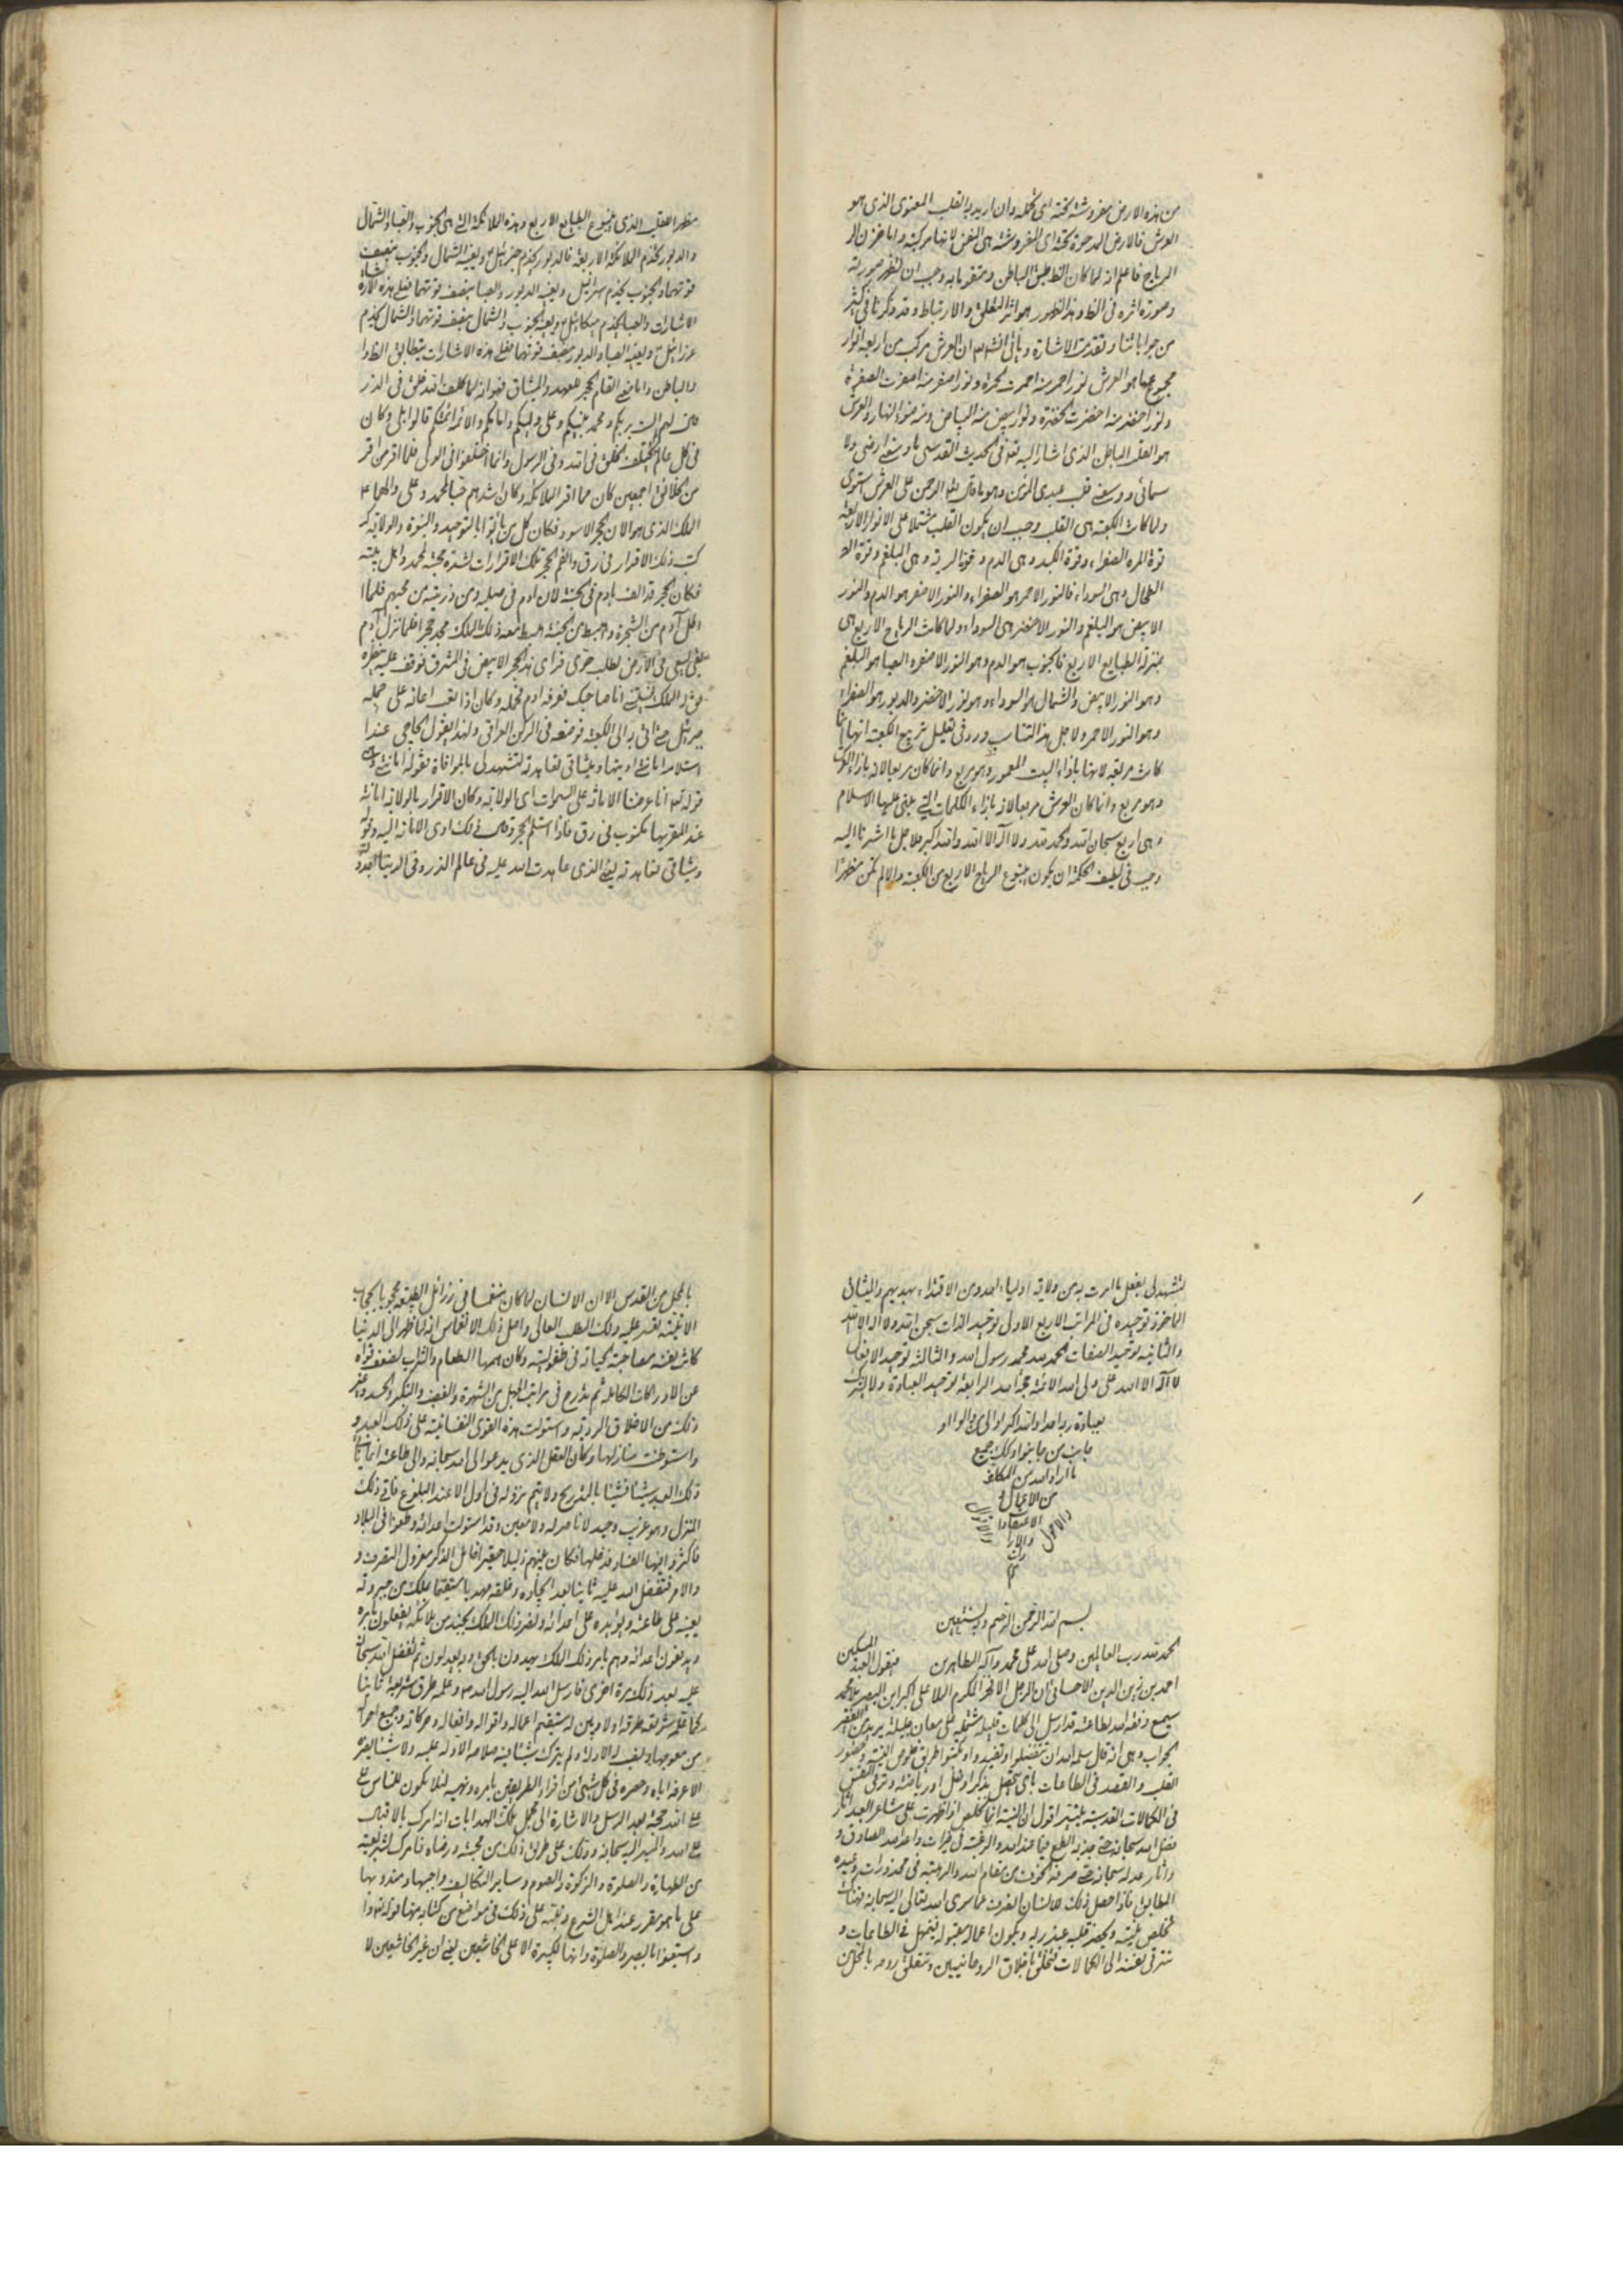 من هذه الارض مفروشة تحته اى تحمله وان اريد بالقلب المعنوى الذى هو
العرش فالارض المدحوة تحته اى المفروشة هى النفس لانها مركبه واما مخزن ال
الرياح فاعلم انه لما كان الظ طبق الباطن ومتقوما به وجب ان تظهر صورته
وصورة اثره فى الظ وهذا الظهور هو اثر التعلق والارتباط وقد ذكرنا فى كثير
من جواباتنا وتقدمت الاشارة ويأتى انشاء الله ان العرش مركب من اربعة انوار
مجموعها هو العرش نور احمر منه احمرت الحمرة ونور اصفر منه اصفرت الصفرة
ونور اخضر منه اخضرت الخضرة ونور ابيض منه البياض ومنه ضوء النهار والعرش
هو القلب الباطن الذى اشار اليه تعالى فى الحديث القدسى ما وسعنى ارضى ولا
سمائى ووسعنى قلب عبدى المؤمن وهو ما قال تعالى الرحمن على العرش استوى
ولما كانت الكعبة هى القلب وجب ان يكون القلب مشتملا على الانوار الاربعة
قوة المرة الصفراء وقوة الكبد وهى الدم وقوة الرية وهى البلغم وقوة
الطحال وهى السوداء فالنور الاحمر هو الصفراء والنور الاصفر هو الدم والنور
الابيض هو البلغم والنور الاخضر هى السوداء ولما كانت الرياح الاربع هى
بمنزلة الطبايع الاربع فالجنوب هو الدم وهو النور الاصفر والصبا هو البلغم
وهو النور الابيض والشمال هو السوداء وهو نور الاخضر والدبور هو الصفراء
وهو النور الاحمر ولاجل هذا التناسب ورد فى تعليل تربيع الكعبة انها انما
كانت مربعة لانها بازاء البيت المعمور وهو مربع وانما كان مربعا لانه بازاء العرش
وهو مربع وانما كان العرش مربعا لانه بازاء الكلمات التى بنى عليها الاسلام
وهى اربع سبحان الله والحمد لله ولا اله الا الله والله اكبر فلاجل ما اشرنا اليه
وجب فى لطيف الحكمة ان يكون ينبوع الرياح الاربع من الكعبة والا لم تكن مظهرا
مظهر القلب الذى ينبوع الطبايع الاربع وهذه الملائكة التى هى الجنوب والصبا والشمال
والدبور تخدم الملائكة الاربعة فالدبور تخدم جبرئيل ويعينه الشمال والجنوب بنصف
قوتهما والجنوب يخدم اسرافيل ويعينه الدبور والصبا بنصف قوتهما فعلى هذه
الاشارات والصبا يخدم ميكائيل ويعينه الجنوب والشمال بنصف قوتهما والشمال يخدم
عزرائيل ويعينه الصبا والدبور بنصف قوتهما فعلى هذه الاشارات يتطابق الظ
والباطن واما معنى القام الحجر العهد والميثاق فهو انه لما كلف الله خلقه فى الذر
قال لهم الست بربكم ومحمد نبيكم وعلى وليكم وامامكم والائمة ائمتكم قالوا بلى وكان
فى كل عالم لم يختلف الخلق فى الله وفى الرسول وانما اختلفوا فى الولى فلما اقر من اقر
من الخلائق اجمعين كان مما اقر الملائكة وكان اشدهم حبا لمحمد وعلى والهما ع
الملك الذى هو الان الحجر الاسود فكان كل من اقر بالتوحيد والنبوة والولاية
كتب ذلك الاقرار فى رق والقم الحجر تلك الاقرارات لشدة محبته محمد واهل بيته
فكان الحجر قد الف بآدم فى الجنة لان آدم فى صلبه ومن ذريته من محبهم فلما
اكل آدم من الشجرة واهبط من الجنة اهبط معه ذلك الملك حجر فلما نزل آدم
بقى يسعى فى الارض لطلب حوى فراى هذا الحجر الابيض فى المشرق فوقف عليه ينظره
فقال الملك انا صاحبك فعرفه آدم فحمله وكان اذا تعب اعانه على حمله
جبرئيل حتى اتى به الى الكعبة فوضعه فى الركن العراقى ولهذا يقول الحاجى عند
استلامه امانتى اديتها وميثاقى تعاهدته لتشهد لى بالموافاة فقوله امانتى
قوله تعالى انا عرضنا الامانة على السموات اى الولاية وكان الاقرار بالولاية امانة
عند المقر بها مكتوب فى رق فاذا استلم الحجر وقال ذلك ادى الامانة اليه
وميثاقى تعاهدته يعنى الذى عاهدت الله عليه فى عالم الذر وفى الدنيا
لتشهد لى بفعل ما امرت به من ولاية اولياء الله ومن الاقتداء بهديهم والميثاق
المأخوذ توحيده فى المراتب الاربع الاولى توحيد الذات سبحان الله ولا اله الا الله
والثانية توحيد الصفات الحمد لله محمد رسول الله والثالثة توحيد الافعال
لا اله الا الله على ولى الله الائمة حجة الله الرابعة توحيد العبادة ولا يشرك
بعبادة ربه احدا والله اكبر
جميع
ما اراد الله من المكلف
من الاعمال و
الاعتقادات
تم
بسم الله الرحمن الرحيم وبه نستعين
الحمد لله رب العالمين وصلى الله على محمد وآله الطاهرين فيقول العبد المسكين
احمد بن زين الدين الاحسائى ان الرجل الافخر الاكرم الملا على اكبر ابن المبصر ملا محمد
سميع وفقه الله لطاعته قد ارسل الى كلمات قليلة مشتملة على معان جليلة يريد من الفقير
الجواب وهى انه قال سلمه الله ان تتفضلوا وتفيدوا وتكتبوا طريق خلوص النية وحضور
القلب والقصد فى الطاعات باى يحصل بذكر او فعل او رياضة وترقى النفس
فى الكمالات القدسية اقول ان النية انما تخلص اذا ظهرت على مشاعر العبد آثار
فضل الله سبحانه حتى جذبه الطمع فيما عند الله والرغبة فى خيرات واعد الله الصادق و
واثار عدله سبحانه حتى صرفه الخوف من مقام الله والرهبة فى محذورات وعيده
المطابق فاذا حصل ذلك للانسان انصرف عما سوى الله تعالى اليه سبحانه فهناك
تخلص نيته ويحضر قلبه عند ربه ويكون اعماله مقبولة فينهمل فى الطاعات و
تترقى نفسه الى الكمالات فتخلق باخلاق الروحانيين وتتعلق روحه بالمحل من
بالمحل من القدس الا ان الانسان لما كان منغمسا فى رذائل الطبيعة محجوبا بالحجاب
الانية تعسر عليه ذلك المطلب العالى واصل ذلك الانغماس انه لما ظهر الى الدنيا
كانت نفسه مصاحبة لحياته فى طفوليته وكان همها الطعام والشراب لضعف قواه
عن الادراكات الكاملة ثم تدرج فى مراتب الجهل من الشهوة والغضب والتكبر والحسد وغير
ذلك من الاخلاق الردية واستولت هذه القوى النفسانية على ذلك العبد و
واستوطنت منازلها وكان العقل الذى يدعوا الى الله سبحانه والى طاعته انما ياتى
ذلك العبد شيئا فشيئا بالتدريج ولا يتم نزوله فى اول الا عند البلوغ فاتى ذلك
المنزل وهو غريب وحيد لا ناصر له ولا معين وقد استولت اعدائه وطغوا فى البلاد
فاكثروا فيها الفساد فكان بينهم ذليلا حقيرا خامل الذكر معزول التصرف و
والامر فتفضل الله عليه ثانيا بعد ايجاده وخلقه مهديا مستقيما بملك من جبروته
يعينه على طاعته ويؤيده على اعدائه ونصر ذلك الملك بجند من ملائكته يفعلون بامره
ويدفعون اعدائه وهم بامر ذلك الملك يهدون بالحق وبه يعدلون ثم تفضل الله سبحانه
عليه بعد ذلك مرة اخرى فارسل الله اليه رسول الله ص وعلمه طرق شريعته ثانيا
كما علمه شريعة طرقه اولا وبين له مستقيم اعماله واقواله وافعاله وحركاته وجميع احواله
من معوجها ونصب له الادلة ولم يترك شيئا فيه صلاحه الا دله عليه ولا شيئا يضره
الا عرفه اياه وحصره فى كل شىء من افراد الطريقين بامره ونهيه لئلا يكون للناس
على الله حجة بعد الرسل والاشارة الى مجمل تلك الهدايات انه امرك بالاقبال
على الله والمسير اليه سبحانه وذلك على طريق ذلك من محبته ورضاه فامرك بشريعته
من الطهارة والصلوة والزكوة والصوم وساير التكاليف واجبها ومندوبها
على ما هو مقرر عند اهل الشرع ونبه على ذلك فى مواضع من كتابه منها قوله تعالى
واستعينوا بالصبر والصلوة وانها لكبيرة الا على الخاشعين يعنى ان غير الخاشعين لا